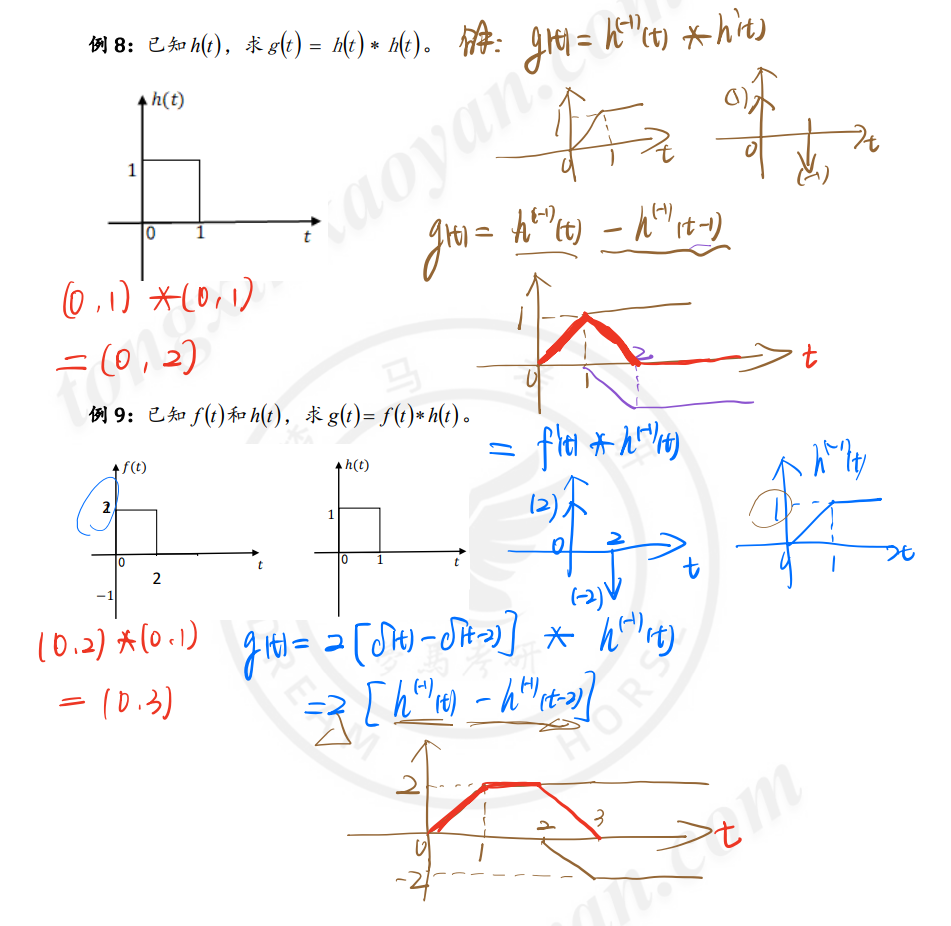 例 8：已知 h(t)，求 g(t) = h(t) * h(t)。 解: g(t) = h⁽⁻¹⁾(t) * h'(t)
h(t)
1
0 1 t
1
0 1 t
(1)
0 t
(-1)
g(t) = h⁽⁻¹⁾(t) - h⁽⁻¹⁾(t-1)
(0,1) * (0,1)
= (0,2)
1
0 1 2 t
例 9：已知 f(t)和 h(t)，求 g(t)= f(t)*h(t)。
= f'(t) * h⁽⁻¹⁾(t)
f(t)
2
0 2 t
−1
h(t)
1
0 1 t
(2)
0 2 t
(-2)
h⁽⁻¹⁾(t)
1
0 1 t
(0,2) * (0,1)
= (0,3)
g(t) = 2[δ(t) - δ(t-2)] * h⁽⁻¹⁾(t)
= 2[h⁽⁻¹⁾(t) - h⁽⁻¹⁾(t-2)]
2
0 1 2 3 t
-2